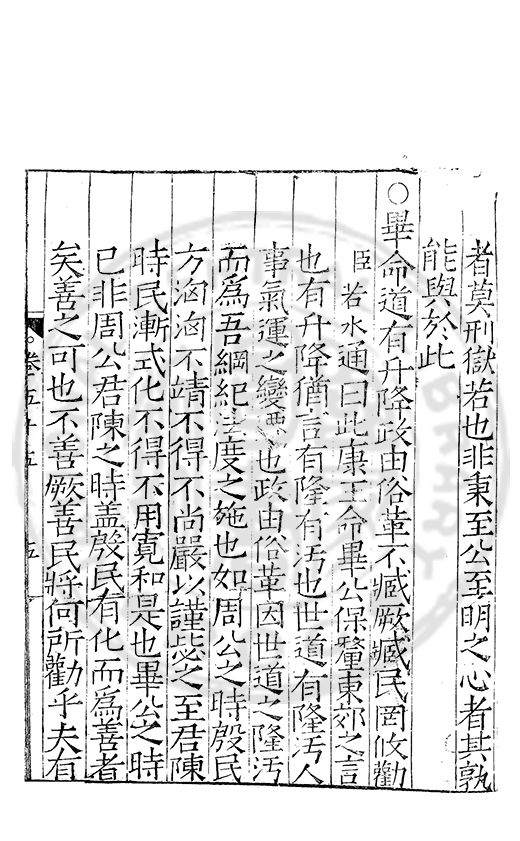 者莫刑獄若也非秉至公至明之心者其孰
能與於此
○畢命道有升降政由俗革不臧厥臧民罔攸勸
臣若水通曰此康王命畢公保釐東郊之言
也有升降猶言有隆有汚也世道有隆汚人
事氣運之變也政由俗革因世道之隆汚
而爲吾綱紀法度之施也如周公之時殷民
方洶洶不靖不得不尚嚴以謹毖之至君陳
時民漸式化不得不用寛和是也畢公之時
已非周公君陳之時盖殷民有化而爲善者
矣善之可也不善厥善民將何所勸乎夫有
卷五十五
五